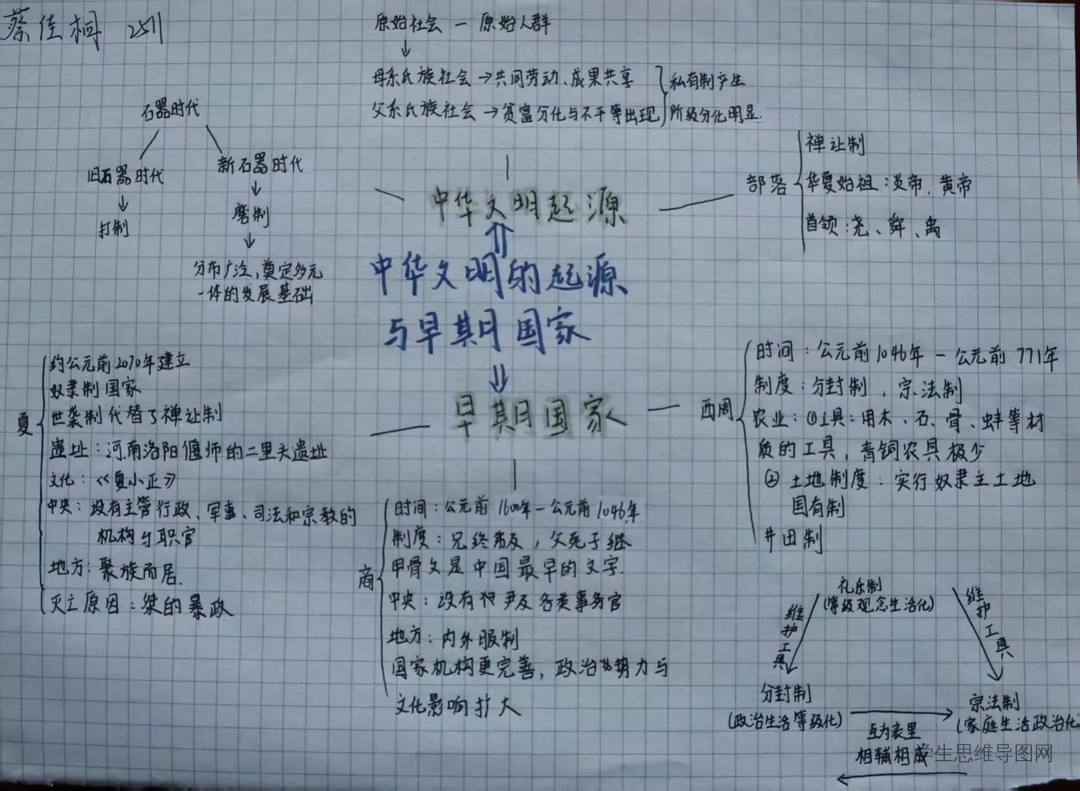 蔡佳桐 2511
原始社会 — 原始人群
母系氏族社会 → 共同劳动、成果共享
父系氏族社会 → 贫富分化与不平等出现
私有制产生
阶级分化明显.
石器时代
旧石器时代
打制
新石器时代
磨制
分布广泛,奠定多元
一体的发展基础
中华文明起源
部落
禅让制
华夏始祖:炎帝、黄帝
首领:尧、舜、禹
中华文明的起源
与早期国家
早期国家
夏
约公元前2070年建立
奴隶制国家
世袭制代替了禅让制
遗址:河南洛阳偃师的二里头遗址
文化:《夏小正》
中央:设有主管行政、军事、司法和宗教的
机构与职官
地方:聚族而居.
灭亡原因:桀的暴政
商
时间:公元前1600年—公元前1046年
制度:兄终弟及,父死子继
甲骨文是中国最早的文字.
中央:设有 尹及各类事务官
地方:内外服制
国家机构更完善,政治势力与
文化影响扩大
西周
时间:公元前1046年 — 公元前771年
制度:分封制,宗法制
农业:①工具:用木、石、骨、蚌等材
质的工具,青铜农具极少
② 土地制度:实行奴隶主土地
国有制
井田制
礼乐制
(等级观念生活化)
维护工具
维护工具
分封制
(政治生活等级化)
宗法制
(家庭生活政治化
互为表里
相辅相成
学生思维导图网